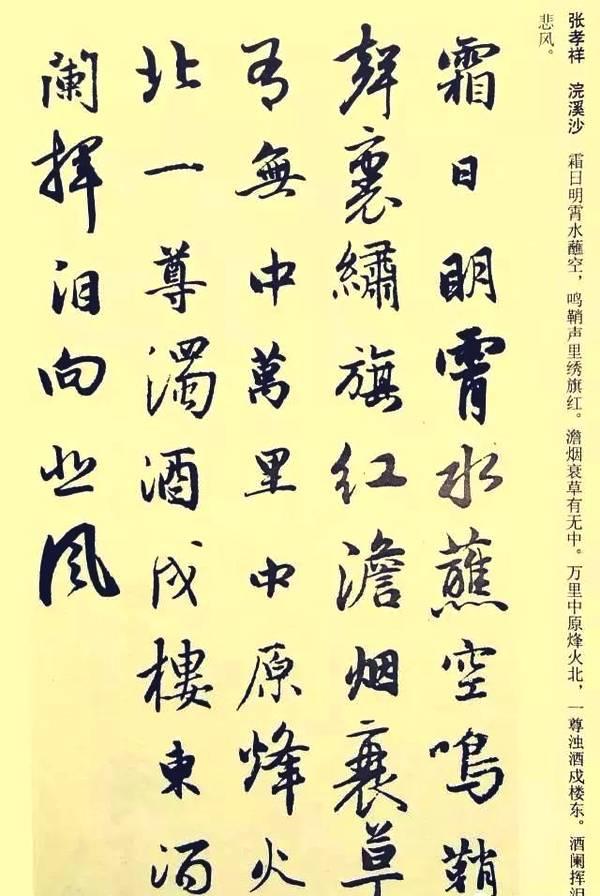 张孝祥 浣溪沙 霜日明霄水蘸空，鸣鞘声里绣旗红。澹烟衰草有无中。万里中原烽火北，一尊浊酒戍楼东。酒阑挥泪
悲风。
霜日明霄水蘸空鳴鞘
聲裏繡旗红澹烟衰草
有無中萬里中原烽火
北一尊濁酒戍樓東酒
闌揮泪向悲風